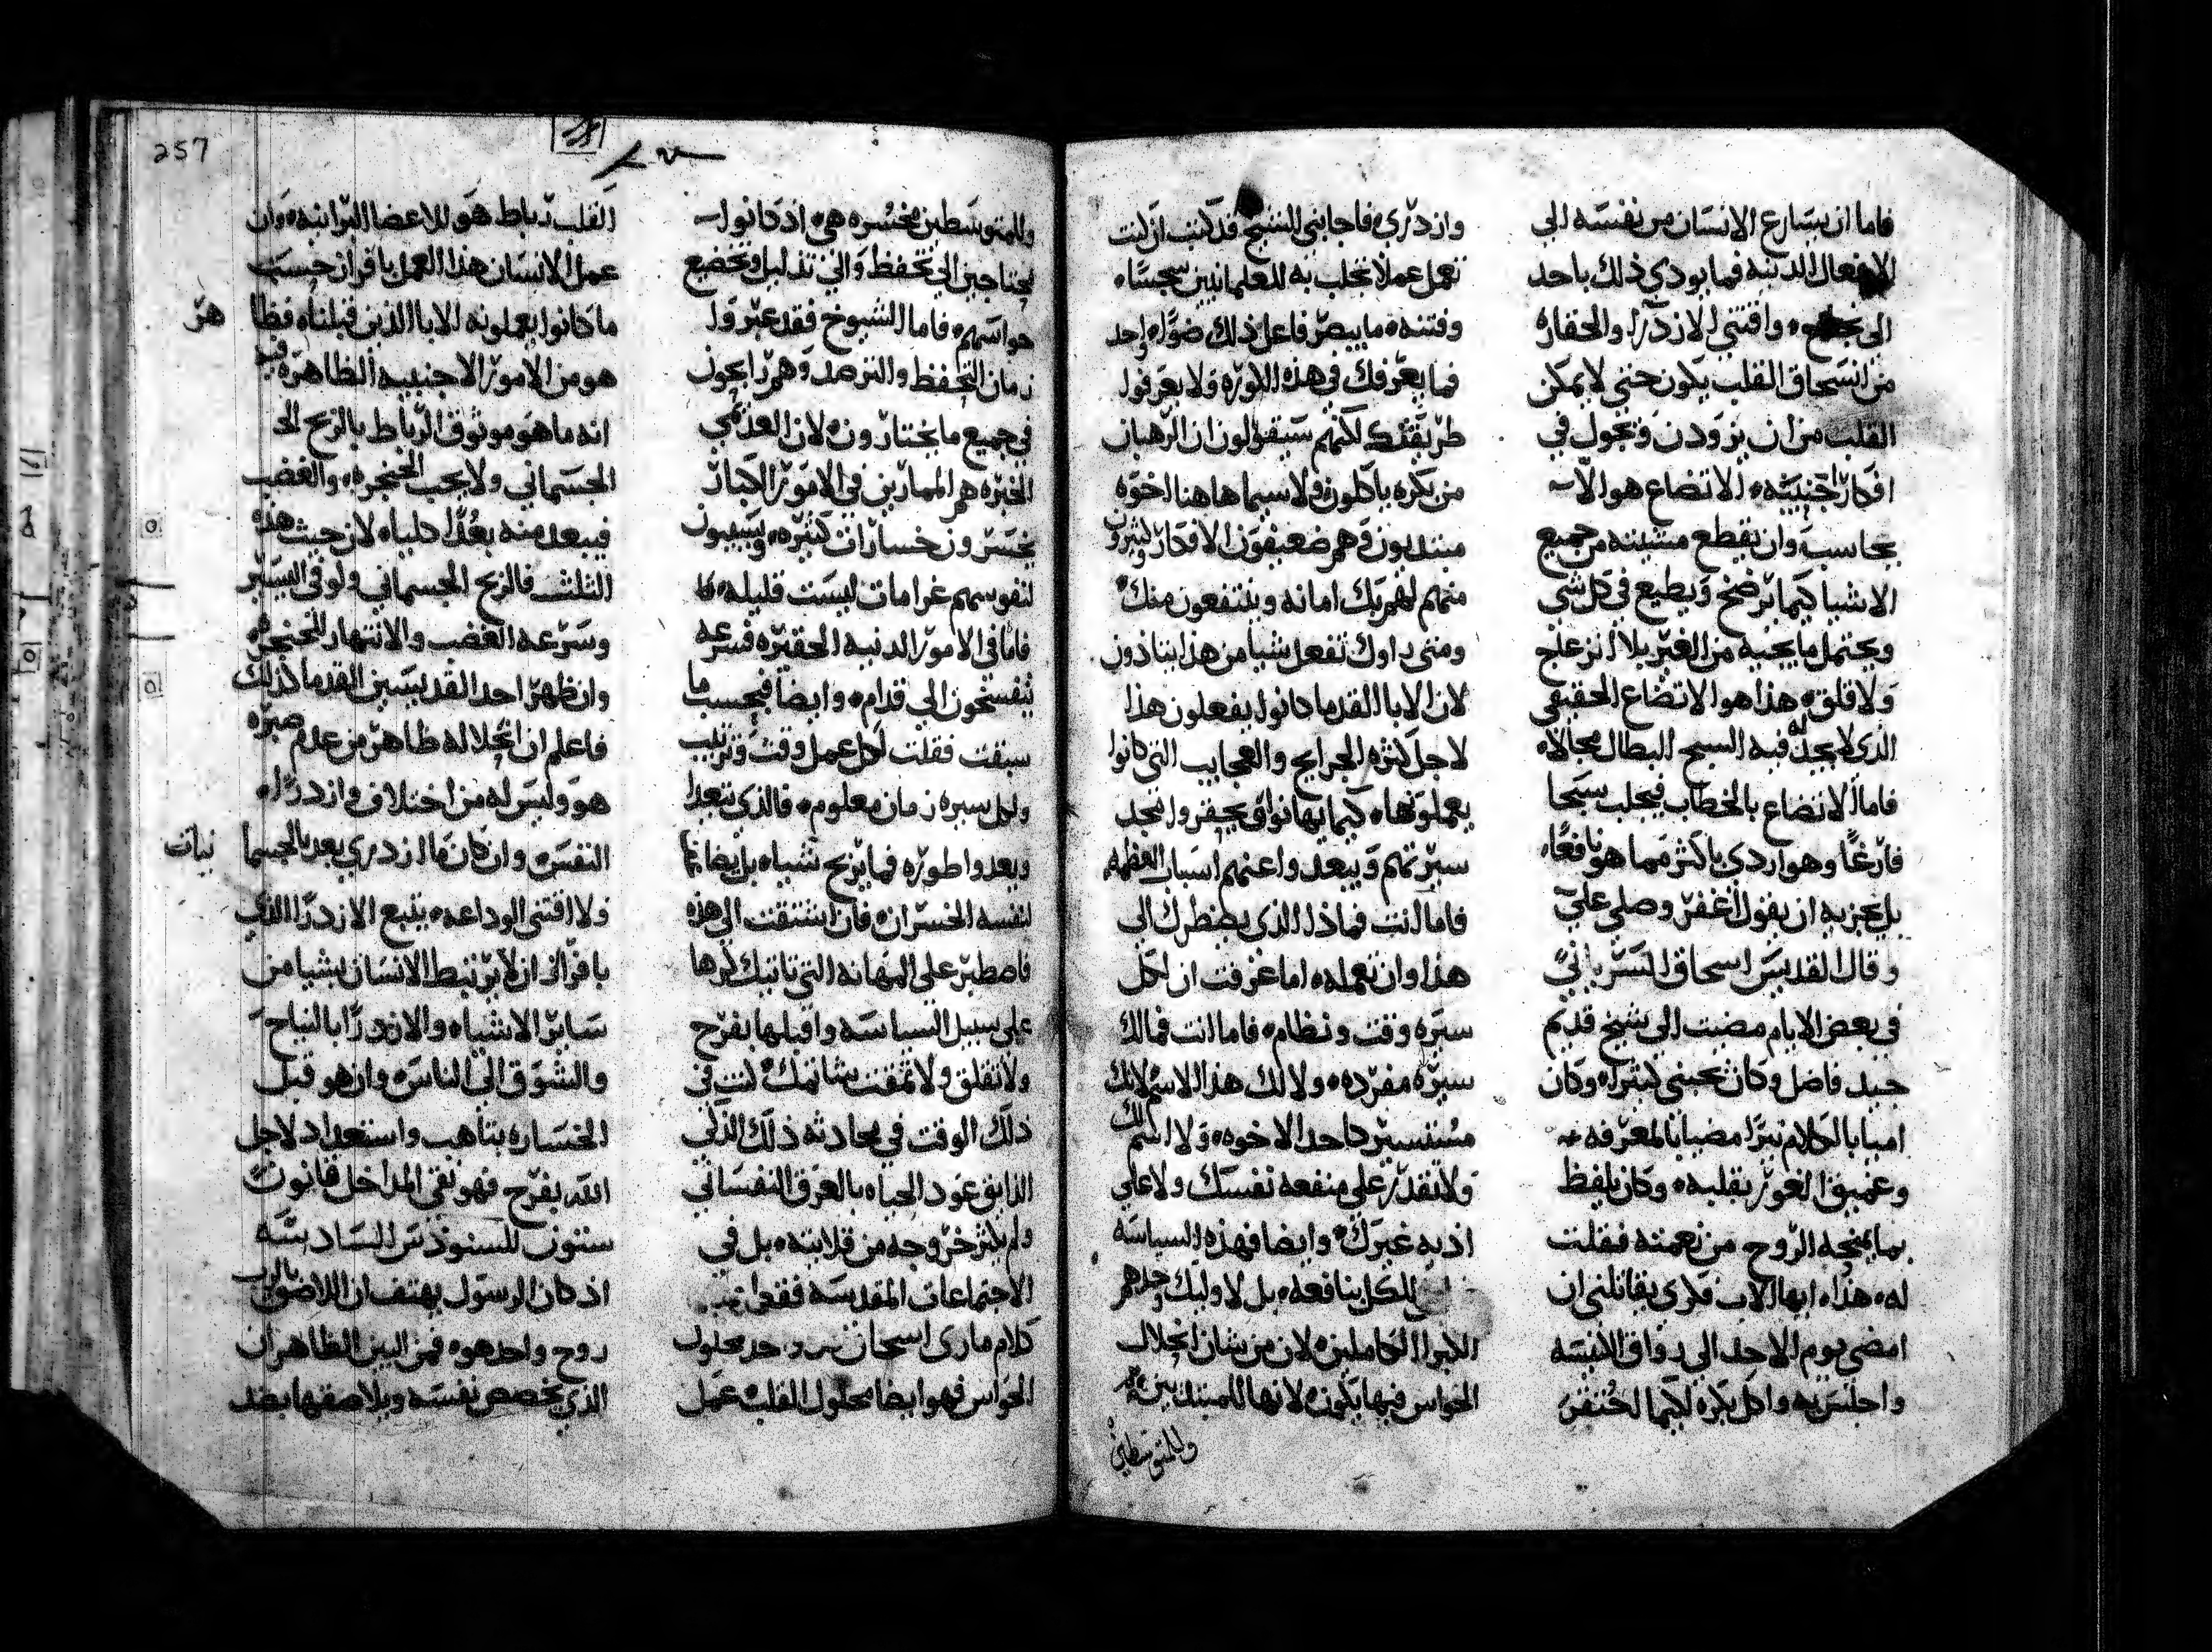 فاما ان يسارع الانسان من نفسه الي
الافعال الدنيه فما يودي ذلك باحد
الي نجاحه واقتني الازدرا والحقاره
من انسحاق القلب يكون حتي لا يمكن
القلب من ان يرودن ويجول في
افكار اجنبيه الاتضاع هو الا
يحاسب وان يقطع مشيته من جميع
الاشيا كيما يرضخ ويطيع في كل شي
ويحتمل ما يجيه من الغير بلا انزعاج
ولا قلق هذا هو الاتضاع الحقيقي
الذي لا يجد له فيه السبح البطال مجالا
فاما الاتضاع بالخطاب فيجلب سبحا
فارغا وهو اردي باكثر مما هو نافعا
بل يجزيه ان يقول اغفر وصلي علي
وقال القديس اسحاق السرياني
في بعض الايام مضيت الي شيخ قديم
جيد فاضل وكان يحبني كثيرا وكان
اميا بالكلام نيرا مضيا بالمعرفه
وعميق الغور بقلبه وكان يلفظ
بما يمنحه الروح من نعمته فقلت
له هذا ايها الاب فكري يقاتلني ان
امضي يوم الاحد الي رواق الانيسه
واجلس به واكل بكره لكيما احتقر
وازدري فاجابني الشيخ قد كتب ان كنت
تعمل عملا تجلب به للعلمانيين سجسا
وفتنه ما يبصر فاعل ذلك ضوا واحد
فما يعرفك في هذه الكوره ولا يعرفوا
طريقتك لكنهم سيقولون ان الرهبان
من بكره ياكلون ولا سيما هاهنا اخوه
مبتديون وهم ضعيفون الافكار وكثيرون
منهم لهم بك امانه وينتفعون منك
ومتي راوك تفعل شيا من هذا يتاذون
لان الابا القدما كانوا يفعلون هذا
لاجل كثره الجرايح والعجايب التي كانوا
يعملونها كيما يهانوا ويحقروا مجد
سيرتهم ويبعدوا عنهم اسباب العظمه
فاما انت فماذا الذي يضطرك الي
هذا وان تعمله اما عرفت ان لكل
سيره وقت ونظام فاما انت فما لك
سيره مفرده ولا لك هذا الاسم لانك
مستسير كاحد الاخوه ولا اسم لك
ولا تقدر علي منفعه نفسك ولا علي
اذيه غيرك وايضا فهذه السياسه
للكل بنافعه بل لاوليك وحدهم
الابرا الكاملين لان من شان انحلال
الحواس فيها يكون لانها للمبتديين
وللمتوسطين
وللمتوسطين مخسره هي اذ كانوا
يحتاجين الي تحفظ والي تذليل وتخضيع
حواسهم فاما الشيوخ فقد عبروا
زمان التحفظ والترصد وهم رابحون
في جميع ما يختارونه لان العدمي
الخبره هم الممارين في الامور الكبار
يخسرون خسارات كثيره ويسببون
لنفوسهم غرامات ليست قليله
فاما في الامور الدنيه الحقيره فسرعه
ينفسحون الي قدام وايضا فبحسب ما
سبقت فقلت لكل عمل وقت وترتيب
ولكل سيره زمان معلوم فالذي يتعدا
ويعدوا طوره فما يربح شيا بل يضاعف
لنفسه الخسران فان اشتقت الي هذه
فاصطبر علي المهانه التي تاتيك كرها
علي سبيل السياسه واقبلها بفرح
ولا تقلق ولا تمقت شاتمك كنت في
ذلك الوقت في محادثه ذلك الذكي
الذايق عود الحياه بالعرق النفساني
ولم يكثر خروجه من قلايته بل في
الاجتماعات المقدسه فقط
كلام ماري اسحاق محلول
الحواس فهو ايضا محلول القلب عمل
القلب رباط هو للاعضا البرانيه وان
عمل الانسان هذا العمل بافراز حسب
ما كانوا يعملونه الابا الذين قبلنا فظا
هر
هو من الامور الاجنبيه الظاهره فيه
انه ما هو موثوق الرباط بالربح الج
الجسماني ولا يحب الحنجره والغضب
فيبعد منه بعدا كليا لان حيث هذه
الثلثه فالربح الجسماني ولو في اليسير
وسرعه الغضب والانتهار للحنجره
وان ظهر احد القديسين القدما كذلك
فاعلم ان انحلاله ظاهر من عدم صبره
هو وليس له من اختلاف وازدرا
النفس وان كان ما ازدري بعد بالجسما
نيات
ولا اقتني الوداعه يتبع الازدرا الذي
بافراز ان لا يرتبط الانسان بشيا من
ساير الاشيا والازدرا بالنياح
والشوق الي الناس وان هو قبل
الخساره بتاهب واستعداد لاجل
الله بفرح فهو نقي المداخل قانون
ستون للسنودس السادسه
اذ كان الرسول يهتف ان اللاصق بالرب
روح واحد هو فمن البين الظاهر ان
الذي يخصص نفسه ويلاصقها بضد
257